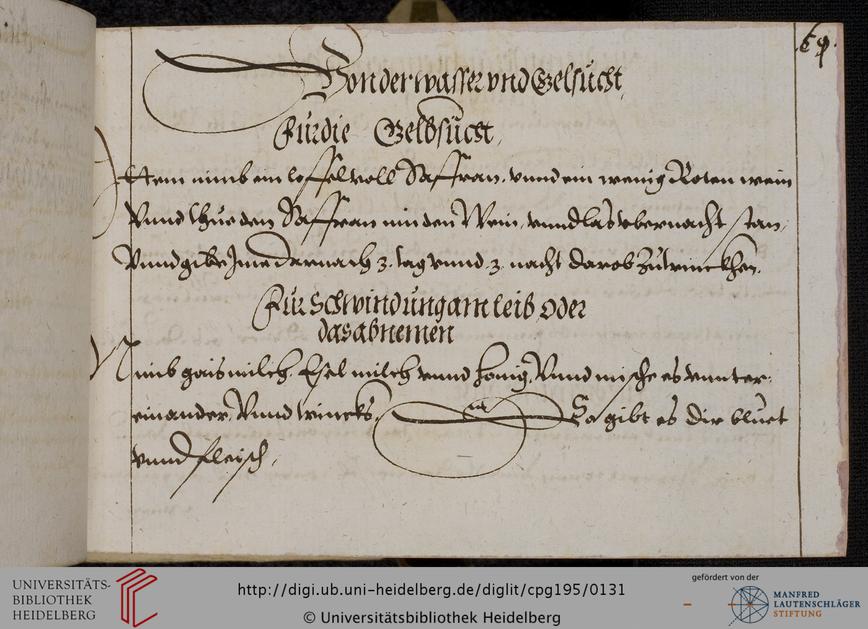 64.
Von der wasser vnd Gelsucht,
Für die Gelbsucht,
Ittem nimb ein loffel voll Saffran, vnnd ein wenig Roten wein
Vnnd thue den Saffran inn den Wein, vnnd las vbernacht stan,
Vnnd gibs Ime darnach 3. tag vnnd 3. nacht darob zutrinckhen.
Für schwindung am leib oder
das abnemen
Nimb gaismilch, Esel milch vnnd honig, Vnnd mische es vnnter
einander, Vnnd trincks, So gibt es dir bluet
vnnd fleisch,
UNIVERSITÄTS-
BIBLIOTHEK
HEIDELBERG
http://digi.ub.uni-heidelberg.de/diglit/cpg195/0131
© Universitätsbibliothek Heidelberg
gefördert von der
MANFRED
LAUTENSCHLÄGER
STIFTUNG